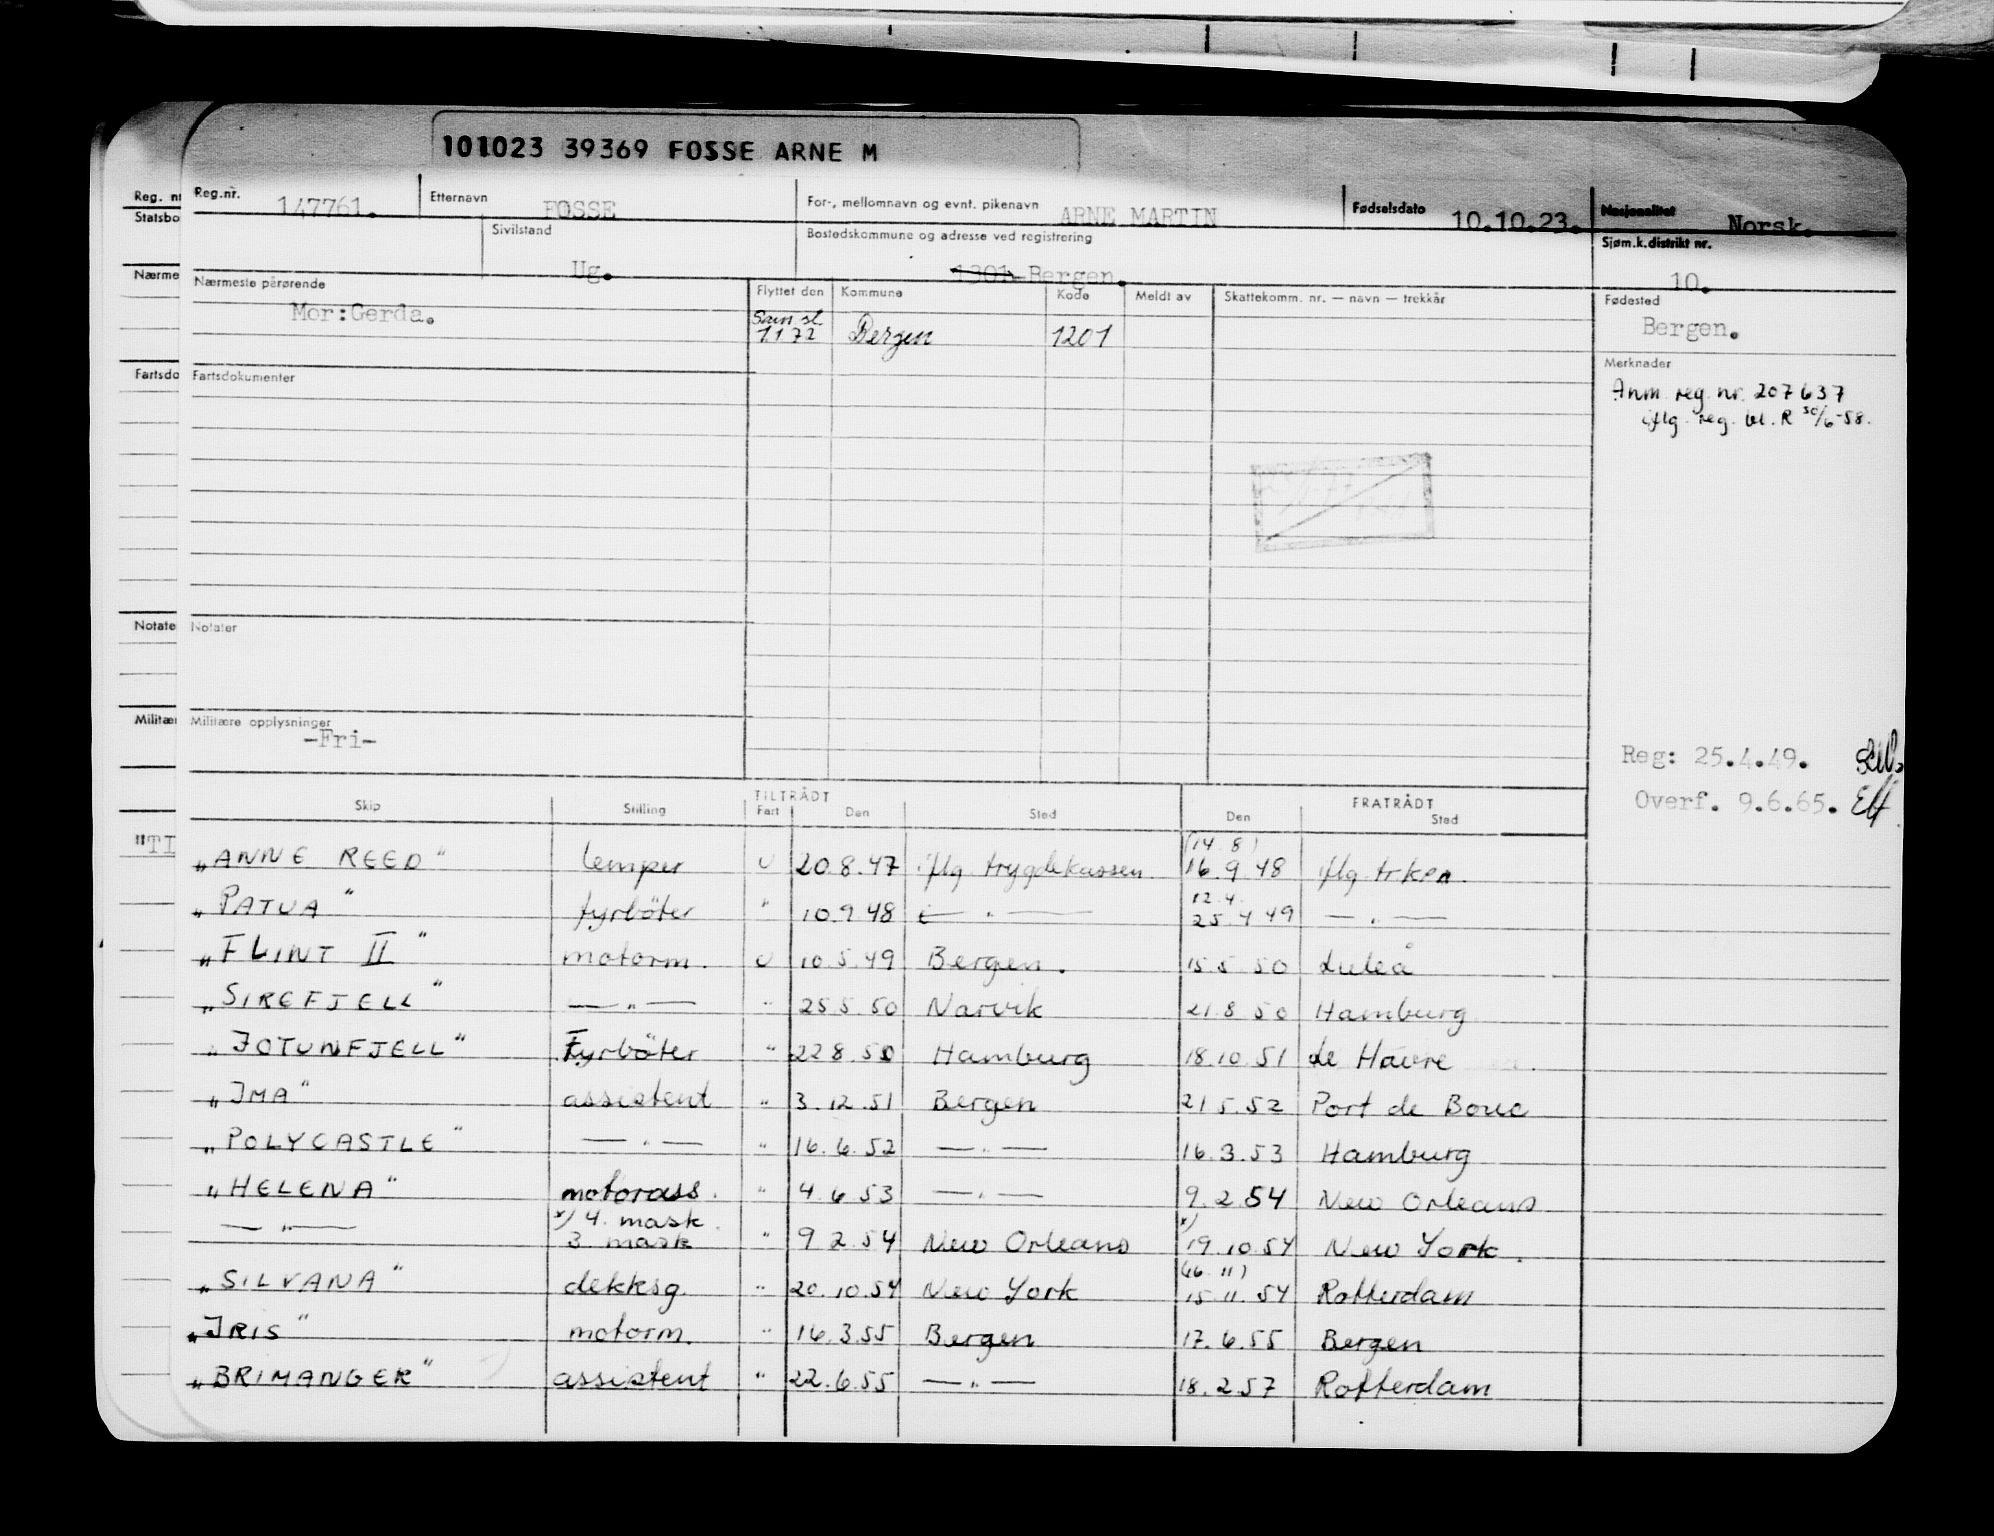 101023 39369 FOSSE ARNE M
Reg. n
Statsbo
Nærme
Fartsdo
Notate
Militær
"TI
Reg.nr. 147761.
Etternavn FOSSE
For-, mellomnavn og evnt. pikenavn ARNE MARTIN
Fødselsdato 10.10.23.
Nasjonalitet Norsk.
Sivilstand Ug.
Bostedskommune og adresse ved registrering 1301 Bergen.
Sjøm.k.distrikt nr. 10.
Nærmeste pårørende Mor:Gerda.
Flyttet den Kommune Kode Meldt av Skattekomm. nr. — navn — trekkår
1.1 72 Bergen 1201
Fødested Bergen.
Merknader
Anm. reg. nr. 207637
iflg. reg. bl. R 30/6-58.
Fartsdokumenter
Notater
Militære opplysninger
-Fri-
Reg: 25.4.49.
Overf. 9.6.65.
TILTRÅDT FRATRÅDT
Skip Stilling Fart Den Sted Den Sted
"ANNE REED" lemper U 20.8.47 iflg. trygdekassen (14.8) 16.9 48 iflg. trken.
"PATUA" fyrbøter " 10.9.48 — " — 12.4. 25.4 49 — " —
"FLINT II" motorm. U 10.5.49 Bergen. 15.5.50 Luleå
"SIREFJELL" — " — " 25.5.50 Narvik 21.8 50 Hamburg
"JOTUNFJELL" Fyrbøter " 22.8.50 Hamburg 18.10.51 Le Havre
"IMA" assistent " 3.12.51 Bergen 21.5.52 Port de Bouc
"POLYCASTLE" — " — " 16.6.52 — " — 16.3.53 Hamburg
"HELENA" motorass. " 4.6.53 — " — 9.2.54 New Orleans
— " — x) 4. mask. 3. mask " 9.2.54 New Orleans x) 19.10.54 New York.
"SILVANA" dekksg. " 20.10.54 New York (16.11) 15.11.54 Rotterdam
"IRIS" motorm. " 16.3.55 Bergen 17.6.55 Bergen
"BRIMANGER" assistent " 22.6.55 — " — 18.2.57 Rotterdam